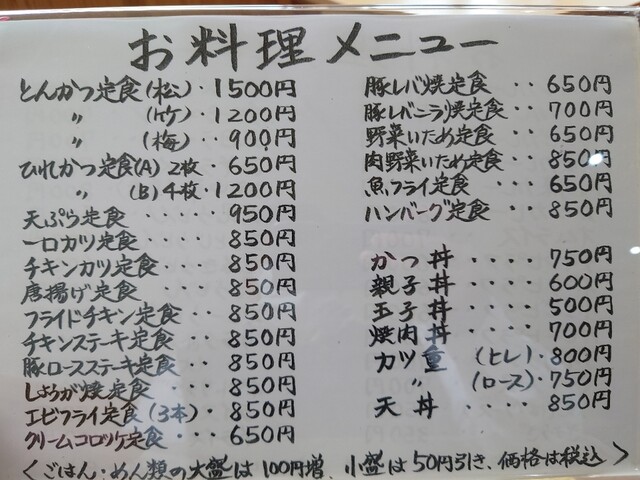 お料理メニュー
とんかつ定食(松)・1500円
〃 (竹)・1200円
〃 (梅)・・900円
ひれかつ定食(A) 2枚・650円
〃 (B) 4枚・1200円
天ぷら定食・・・・・950円
一口カツ定食・・・・850円
チキンカツ定食・・・850円
唐揚げ定食・・・・850円
フライドチキン定食・・850円
チキンステーキ定食・・850円
豚ロースステーキ定食・・850円
しょうが焼定食・・850円
エビフライ定食(3本)・・850円
クリームコロッケ定食・・・650円
豚レバー焼定食・・650円
豚レバニラ焼定食・・700円
野菜いため定食・・650円
肉野菜いため定食・・850円
魚フライ定食・・・650円
ハンバーグ定食・・850円
かつ丼・・・・750円
親子丼・・・・600円
玉子丼・・・・500円
焼肉丼・・・・700円
カツ重 (ヒレ)・800円
〃 (ロース)・750円
天丼・・・・850円
<ごはん・めん類の大盛は100円増、小盛は50円引き、価格は税込>